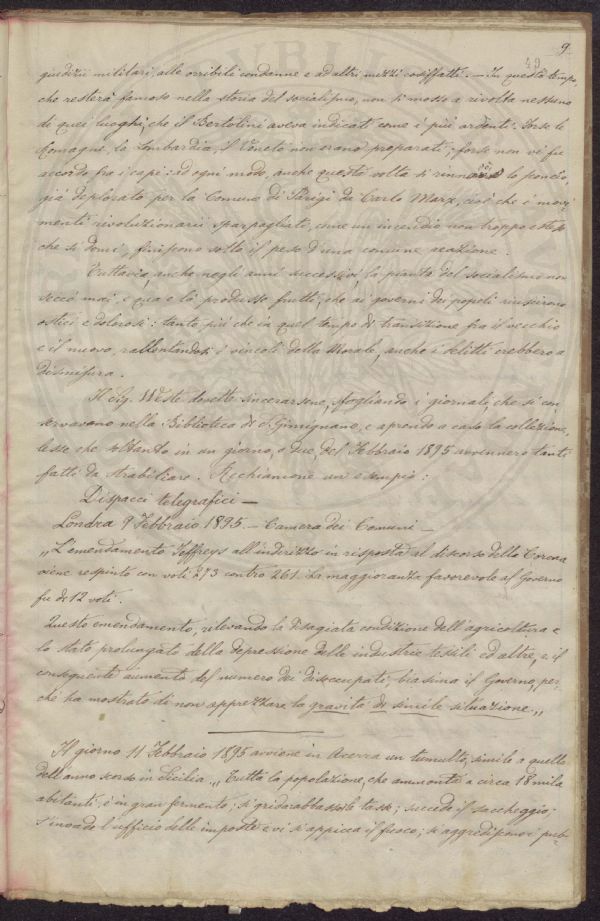 9
49
giudizii militari, alle orribili condanne e ad altri mezzi cosiffatti. — In questo tempo,
che resterà famoso nella storia del socialismo, non si mosse a rivolta nessuno
di quei luoghi, che il Bertolini aveva indicati come i più ardenti. Forse le
Romagne, la Lombardia, il Veneto non erano preparati; forse non vi fu
accordo fra i capi: ad ogni modo, anche questa volta si rinnovò lo
già deplorato per la Comune di Parigi da Carlo Marx, cioè che i movi-
menti rivoluzionarii sparpagliati, come un incendio non troppo esteso
che si domi, finiscono sotto il peso d'una comune reazione.
Tuttavia, anche negli anni successivi, la pianta del socialismo non
seccò mai, e qua e là produsse frutti, che ai governi dei popoli riuscirono
ostici e dolorosi: tanto più che in quel tempo di transizione fra il vecchio
e il nuovo, rallentandosi i vincoli della Morale, anche i delitti crebbero a
dismisura.
Il Sig. Weste dovette sincerarsene, sfogliando i giornali, che si con-
servavano nella Biblioteca di S. Gimignano, e aprendo a caso la collezione,
lesse che soltanto in un giorno, o due, del Febbraio 1895 avvennero tanti
fatti da strabiliare. Rechiamone un esempio:
Dispacci telegrafici —
Londra 9 Febbraio 1895. — Camera dei Comuni —
„L'emendamento Jeffreys all'indirizzo in risposta al discorso della Corona
viene respinto con voti 273 contro 261. La maggioranza favorevole al Governo
fu di 12 voti.
Questo emendamento, rilevando la disagiata condizione dell'agricoltura e
lo stato prolungato della depressione delle industrie tessili ed altre, e il
conseguente aumento del numero dei disoccupati, biasima il Governo, per-
chè ha mostrato di non apprezzare la gravità di simile situazione.„
Il giorno 11 Febbraio 1895 avviene in Acerra un tumulto, simile a quello
dell'anno scorso in Sicilia. „Tutta la popolazione, che ammonta a circa 18 mila
abitanti, è in gran fermento; si grida abbasso le tasse; succede il saccheggio;
s'invade l'ufficio delle imposte e vi si appicca il fuoco; si aggrediscono i pub-